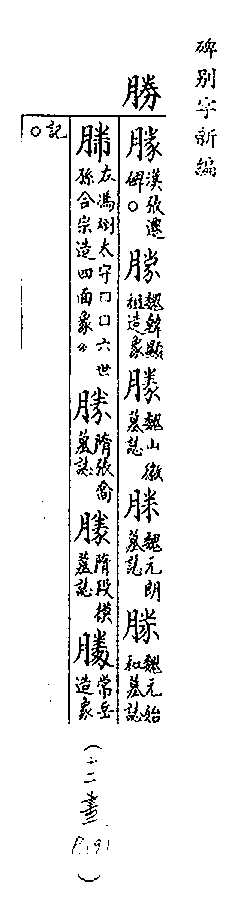 碑別字新編
勝
漢張遷碑。
魏韓顯祖造象
魏山徽墓誌
魏元朗墓誌
魏元始和墓誌
左馮翊太守□□六世孫合宗造四面象
隋張喬墓誌
隋段模墓誌
常岳造象
記。
(十二畫 P.191)